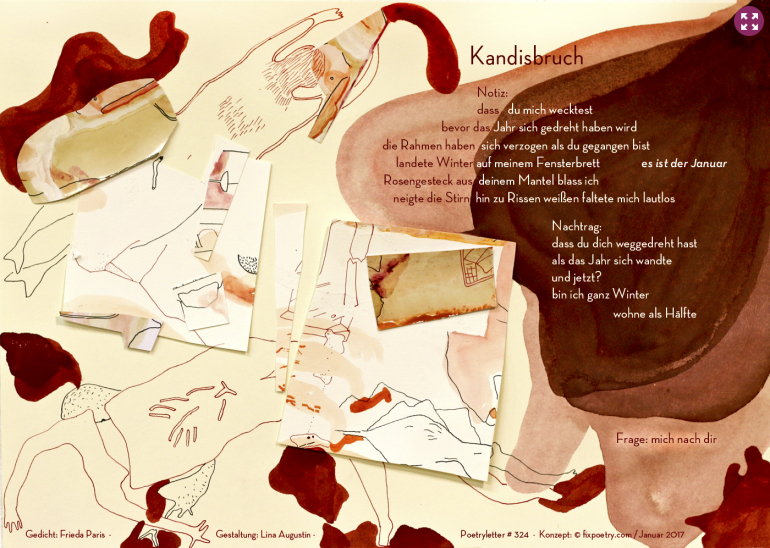 Kandisbruch
Notiz:
dass du mich wecktest
bevor das Jahr sich gedreht haben wird
die Rahmen haben sich verzogen als du gegangen bist
landete Winter auf meinem Fensterbrett es ist der Januar
Rosengesteck aus deinem Mantel blass ich
neigte die Stirn hin zu Rissen weißen faltete mich lautlos
Nachtrag:
dass du dich weggedreht hast
als das Jahr sich wandte
und jetzt?
bin ich ganz Winter
wohne als Hälfte
Frage: mich nach dir
Gedicht: Frieda Paris · Gestaltung: Lina Augustin · Poetryletter # 324 · Konzept: © fixpoetry.com / Januar 2017